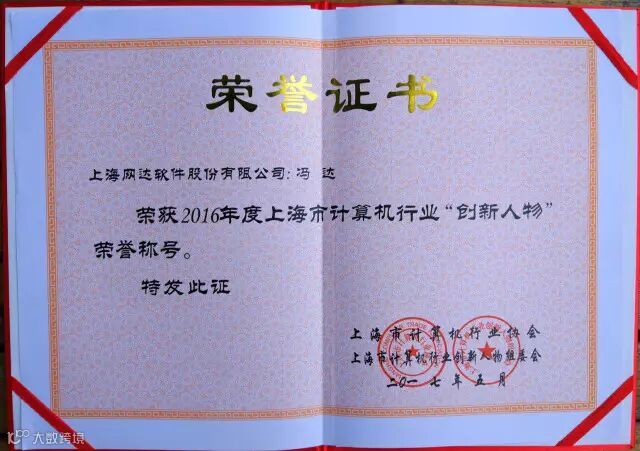 荣誉证书
上海网达软件股份有限公司：冯 达
荣获2016年度上海市计算机行业“创新人物”
荣誉称号。
特发此证
上海市计算机行业协会
上海市计算机行业创新人物组委会
二〇一七年五月
大数跨境